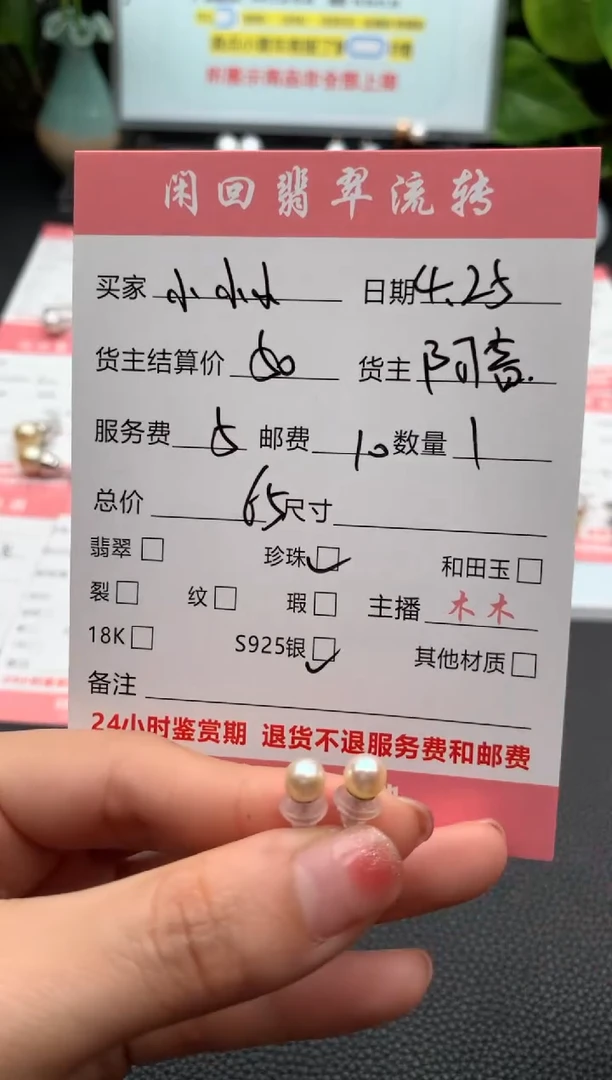 闲回翡翠流转
买家 小小小 日期 4.25
货主结算价 60 货主 阿音
服务费 5 邮费 10 数量 1
总价 65 尺寸
翡翠 珍珠 ✓ 和田玉
裂 纹 瑕 主播 木木
18K S925银 ✓ 其他材质
备注
24小时鉴赏期 退货不退服务费和邮费